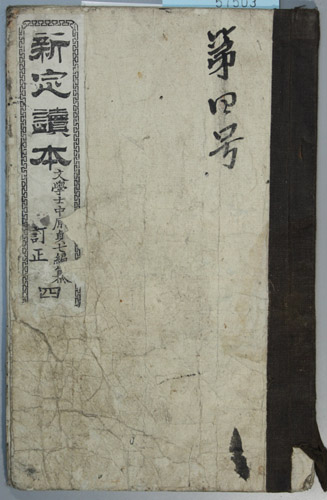 第四号
新定讀本
文學士中原貞七編纂
訂正
四
57503